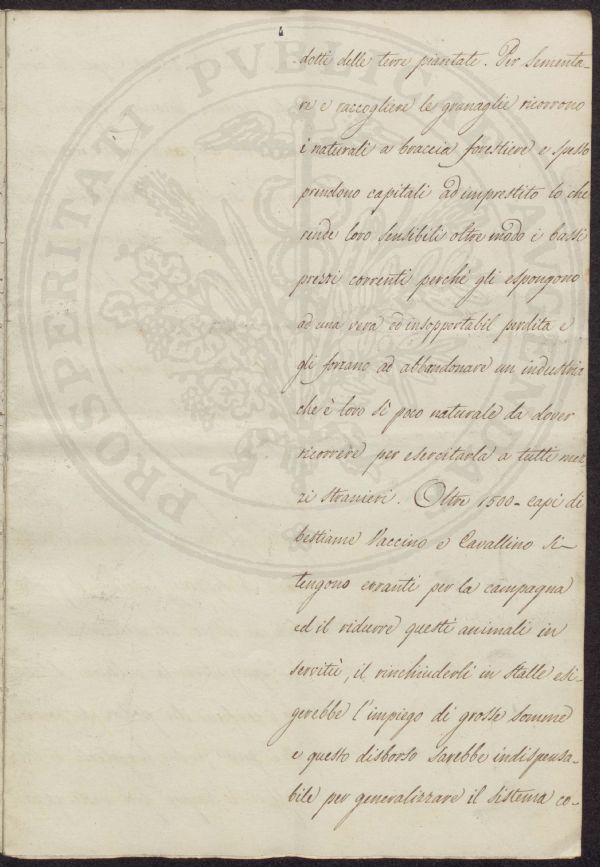 dotti delle terre piantate. Per sementa-
re e raccogliere le granaglie ricorrono
i naturali a braccia forestiere e spesso
prendono capitali ad imprestito lo che
rende loro sensibili oltre modo i bassi
prezzi correnti perchè gli espongono
ad una vera ed insopportabil perdita e
gli forzano ad abbandonare un industria
che è loro sì poco naturale da dover
ricorrere per esercitarla a tutti mez
zi stranieri. Oltre 1500- capi di
bestiame Vaccino e Cavallino si-
tengono erranti per la campagna
ed il ridurre questi animali in
servitù, il rinchiuderli in stalle esi-
gerebbe l'impiego di grosse somme
e questo disborso sarebbe indispensa-
bile per generalizzare il sistema co-
PROSPERITATI PVBLICAE AVGENDAE